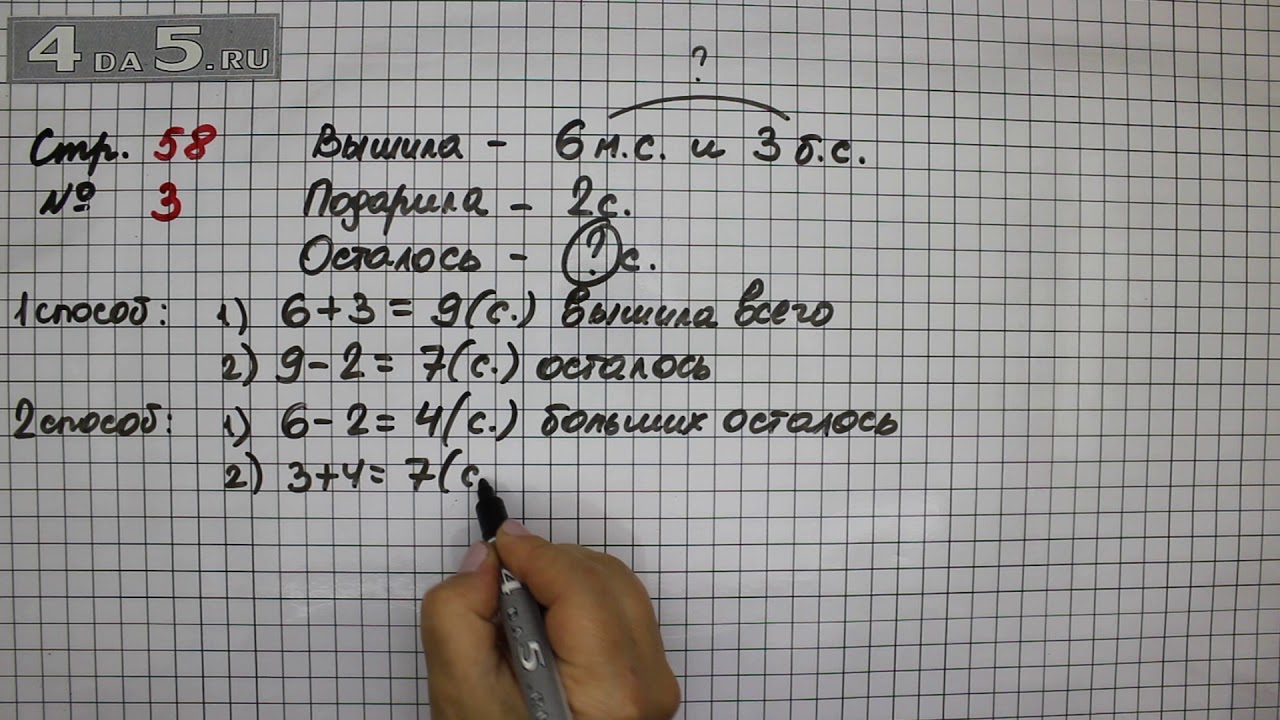 4 DA 5.RU
?
Стр. 58 Вышила - 6 м.с. и 3 б.с.
№ 3 Подарила - 2с.
Осталось - ? с.
1 способ: 1) 6 + 3 = 9 (с.) вышила всего
2) 9 - 2 = 7 (с.) осталось
2 способ: 1) 6 - 2 = 4 (с.) больших осталось
2) 3 + 4 = 7 (с.
4 DA 5